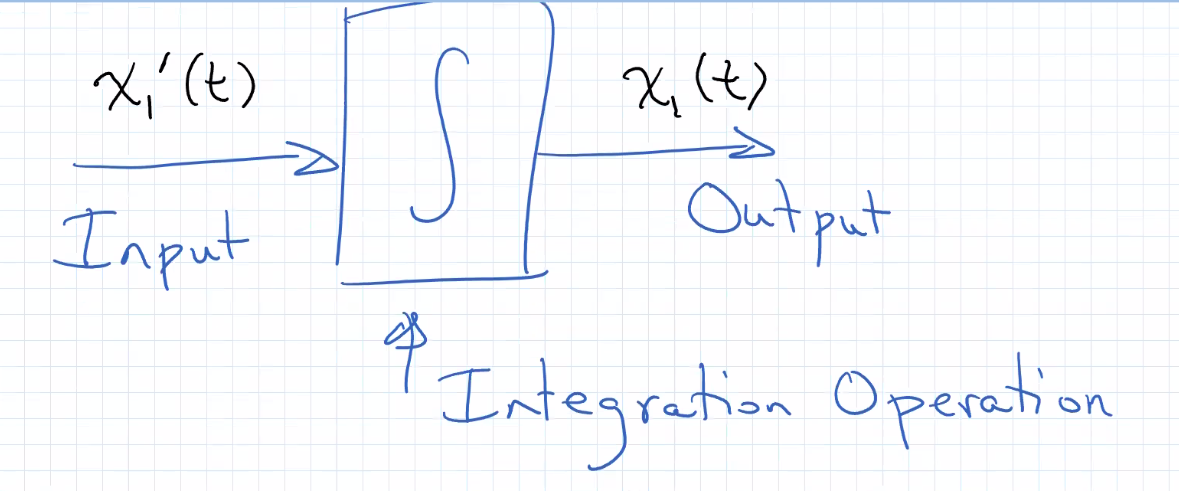 x₁'(t)
∫
x₁(t)
Input
Output
Integration Operation